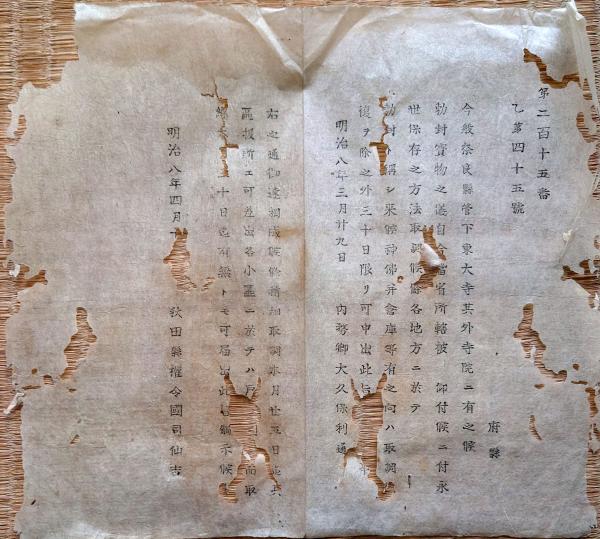 第二百十五番
乙第四十五號
府縣
今般奈良縣管下東大寺其外寺院ニ有之候
勅封寳物之儀自今當省所轄被 仰付候ニ付永
世保存之方法取調候條各地方ニ於テ
勅封ト稱シ来候神佛并倉庫等有之向ハ取調
復ヲ除之外三十日限リ可申出此旨
明治八年三月廿九日 内務卿大久保利通
右之通御達相成候條精細取調本月廿五日迄ニ
區役所エ可差出各小區ニ於テハ 而取
十日迄有無トモ可届出此旨 示候
明治八年四月 秋田縣權令國司仙吉